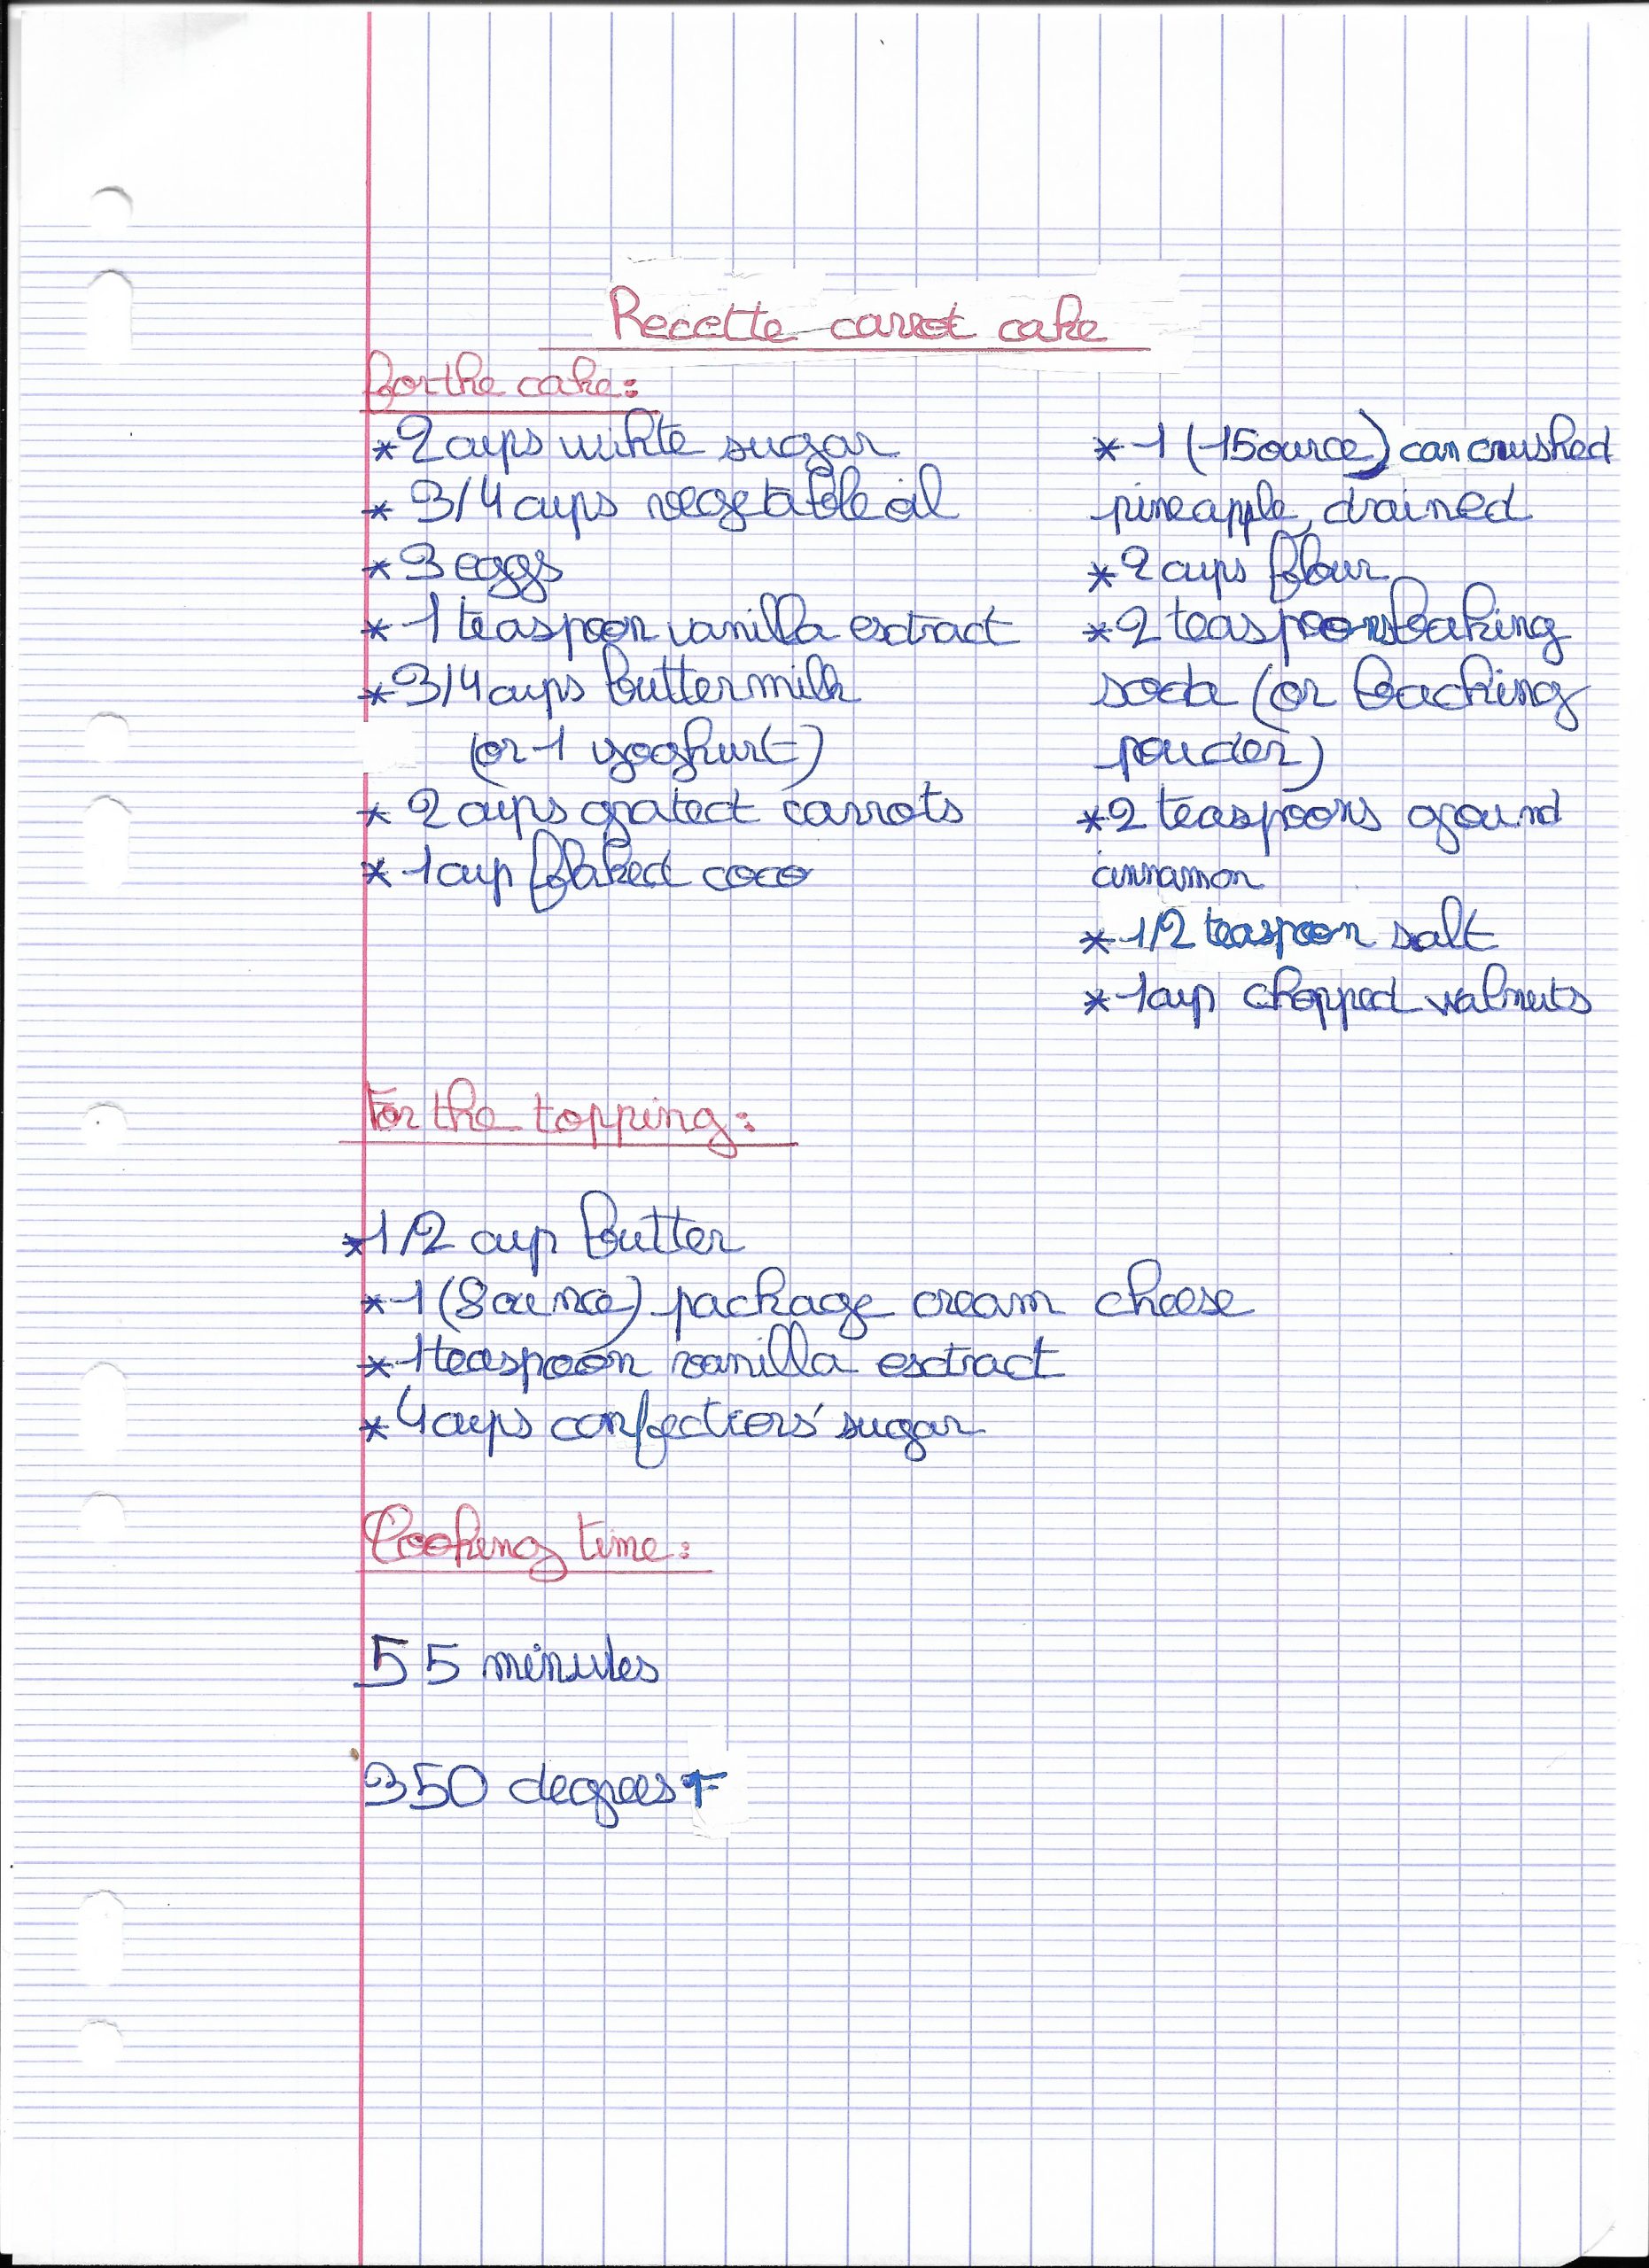 Recette carrot cake
for the cake:
*2 cups wihte sugar
* 3/4 cups vegetable oil
*3 eggs
* 1 teaspoon vanilla extract
*3/4 cups buttermilk
(or 1 yoghurt)
* 2 cups grated carrots
* 1 cup flaked coco
*1 (15 ource) can crushed
pineapple, drained
*2 cups flour
*2 teaspoons baking
soda (or backing
pouder)
*2 teaspoons ground
cinnamon
*1/2 teaspoon salt
*1 cup chopped walnuts
For the topping:
*1/2 cup butter
*1 (8 ounce) package cream cheese
*1 teaspoon vanilla extract
*4 cups confectiors' sugar
Cooking time:
55 minutes
350 degrees F